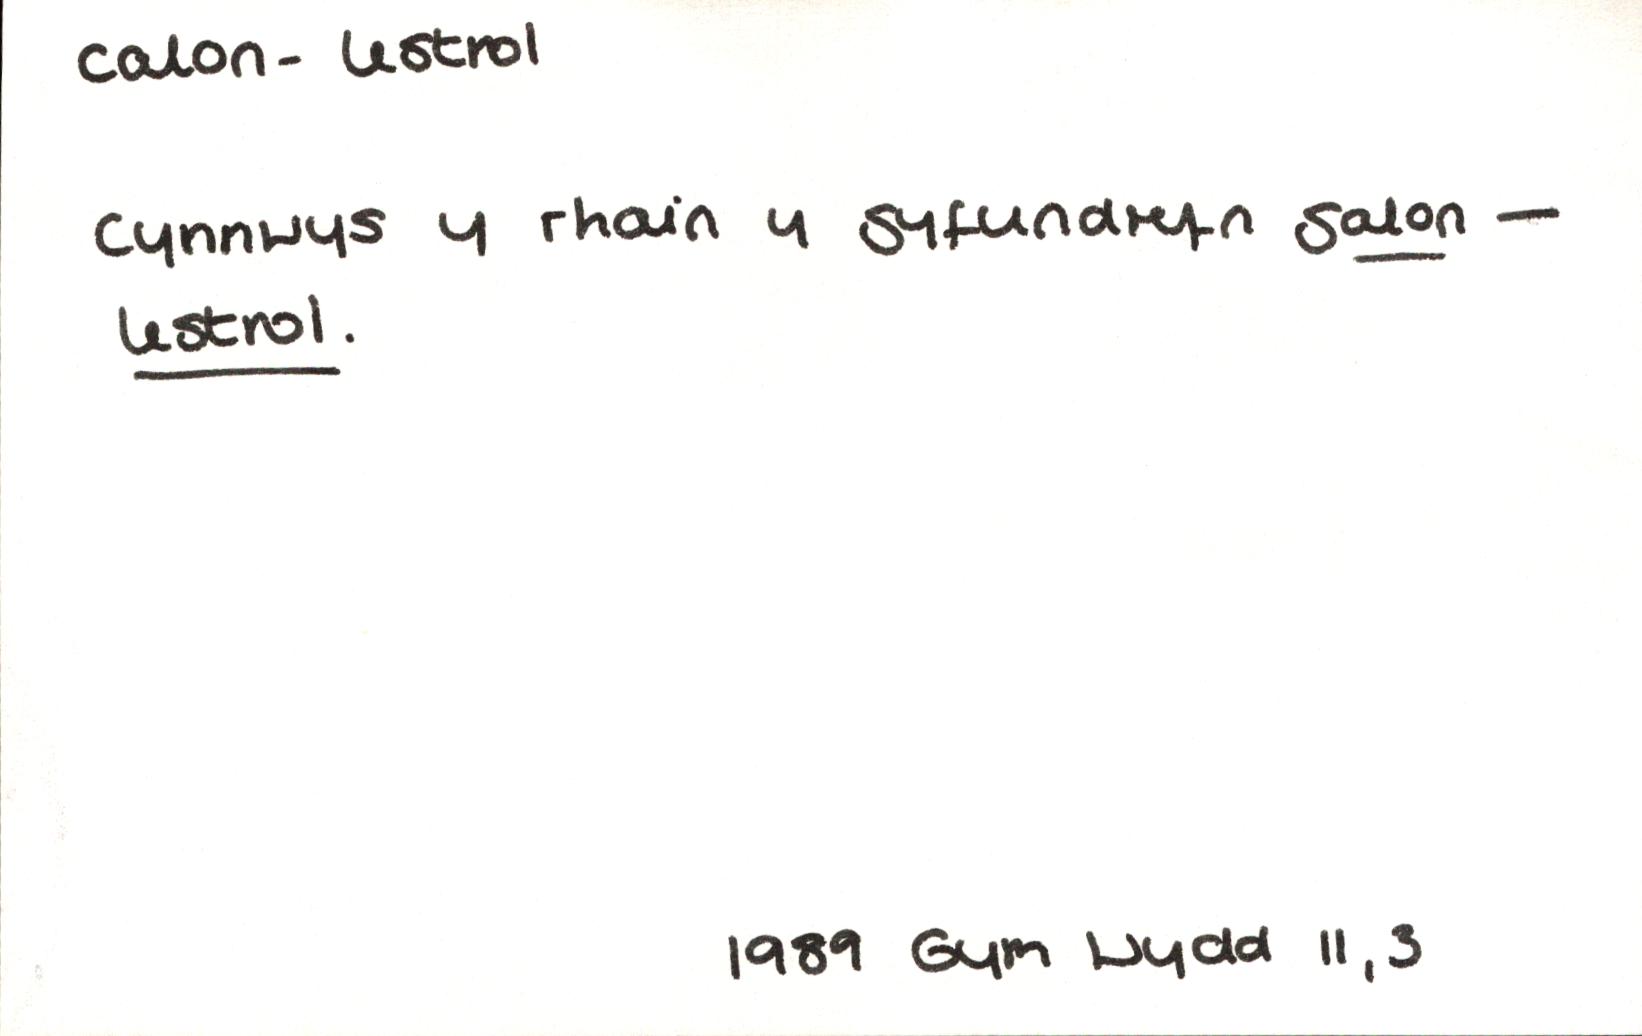 calon-lestrol
Cynnwys y rhain y gyfundrefn galon –
lestrol.
1989 Gym Wydd 11,3